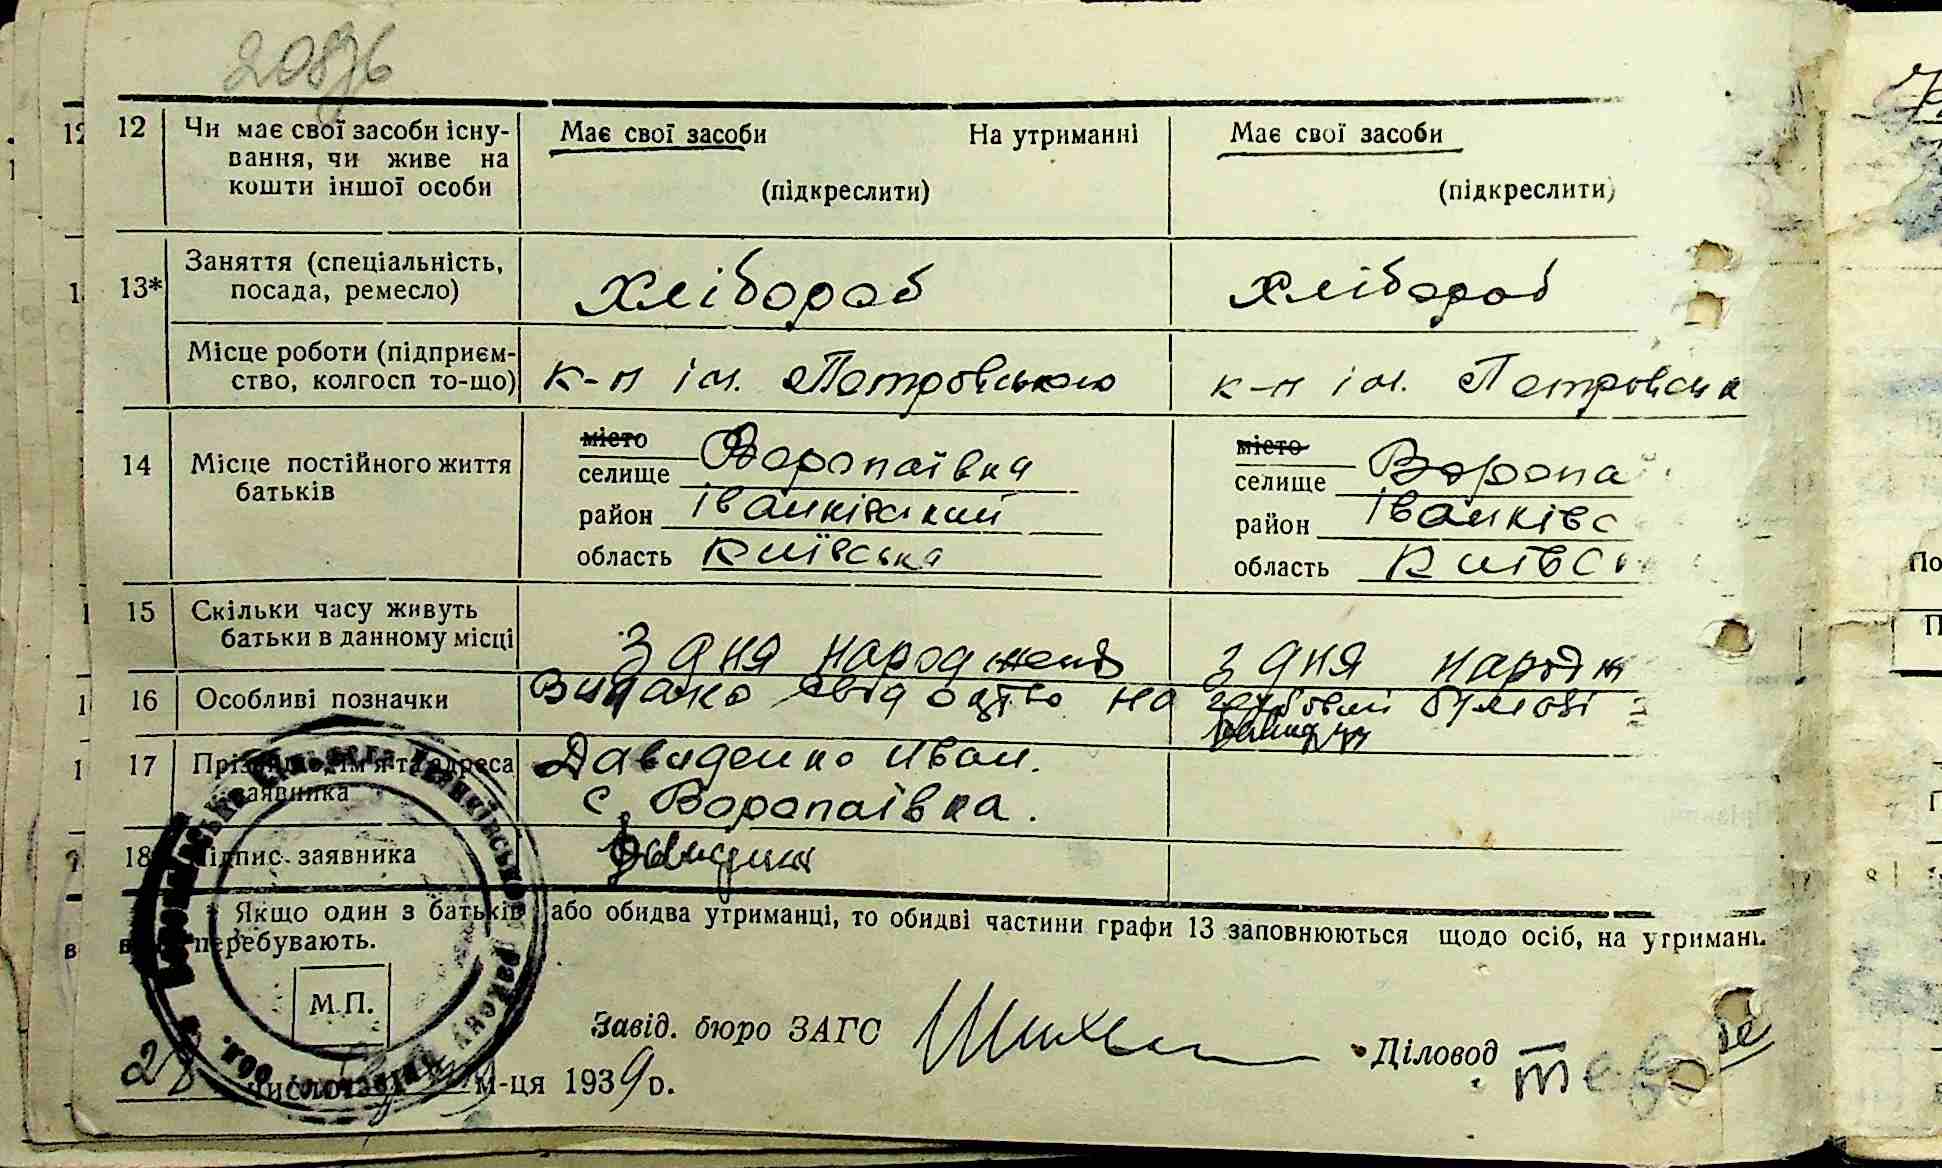 20876
12 Чи має свої засоби існу-
вання, чи живе на
кошти іншої особи
Має свої засоби На утриманні
(підкреслити)
Має свої засоби
(підкреслити)
13* Заняття (спеціальність,
посада, ремесло)
Хлібороб
Хлібороб
Місце роботи (підприєм-
ство, колгосп то-що)
к-п ім. Петровського
к-п ім. Петровськ
14 Місце постійного життя
батьків
місто
селище Воропаївка
район Іванківський
область Київська
місто
селище Воропаї
район Іванківс
область Київсь
15 Скільки часу живуть
батьки в данному місці
З дня народження
З дня народж
16 Особливі позначки
Видано свідоцтво на гербовій бумазі
17 Прізвище, ім'я та адреса
заявника
Давиденко Иван.
с. Воропаївка.
18 Підпис заявника
* Якщо один з батьків або обидва утриманці, то обидві частини графи 13 заповнюються щодо осіб, на утриманн
перебувають.
М.П.
Завід. бюро ЗАГС
Діловод
28 числа м-ця 1939 р.